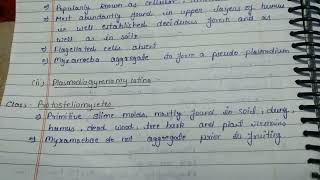 Popularly known as cellular
Most abundantly found in upper layers of humus
in well established deciduous forest and as
well as in soils
Flagellated cells absent
Myxamoeba aggregate to form a pseudo plasmodium
(ii)
Class: Protosteliomycetes
Primitive slime molds, mostly found in soil, dung,
humus, dead wood, tree bark and plant remains
Myxamoebae do not aggregate prior to fruiting